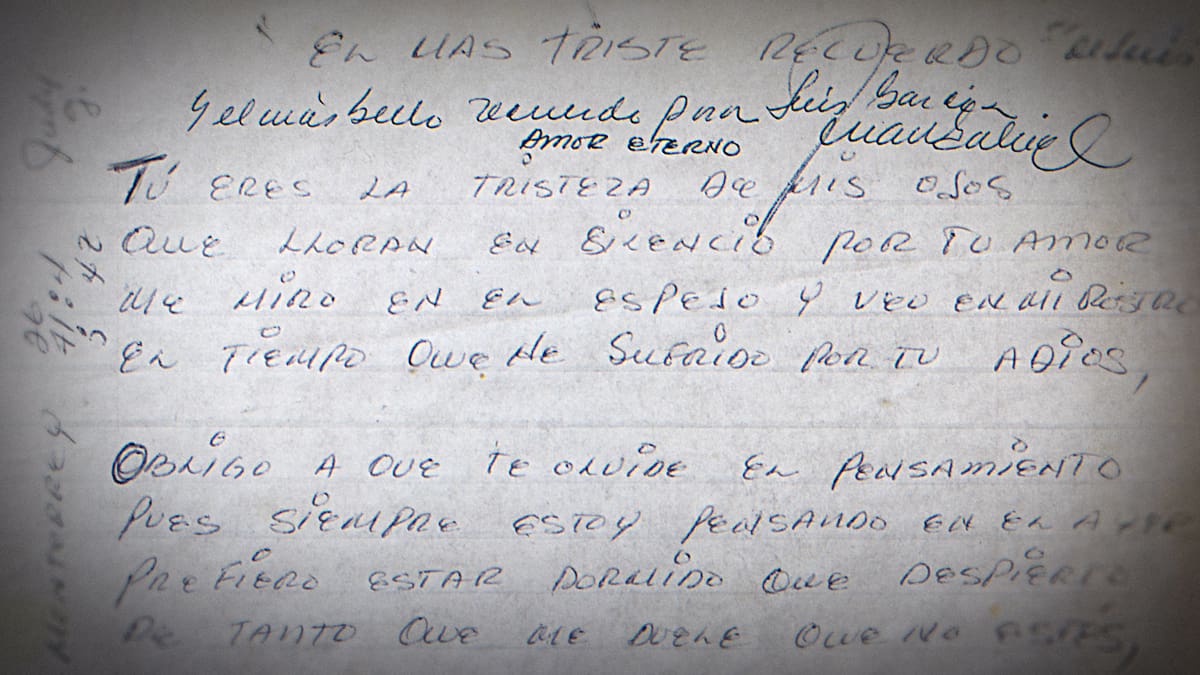 EL MAS TRISTE RECUERDO
y el más bello recuerdo para Luis García
Juan Gabriel
AMOR ETERNO
TÚ ERES LA TRISTEZA DE MIS OJOS
QUE LLORAN EN SILENCIO POR TU AMOR
ME MIRO EN EL ESPEJO Y VEO EN MI ROSTRO
EL TIEMPO QUE HE SUFRIDO POR TU ADIOS,
OBLIGO A QUE TE OLVIDE EL PENSAMIENTO
PUES SIEMPRE ESTOY PENSANDO EN EL AYER
PREFIERO ESTAR DORMIDO QUE DESPIERTO
DE TANTO QUE ME DUELE QUE NO ESTÉS,
MONTERREY